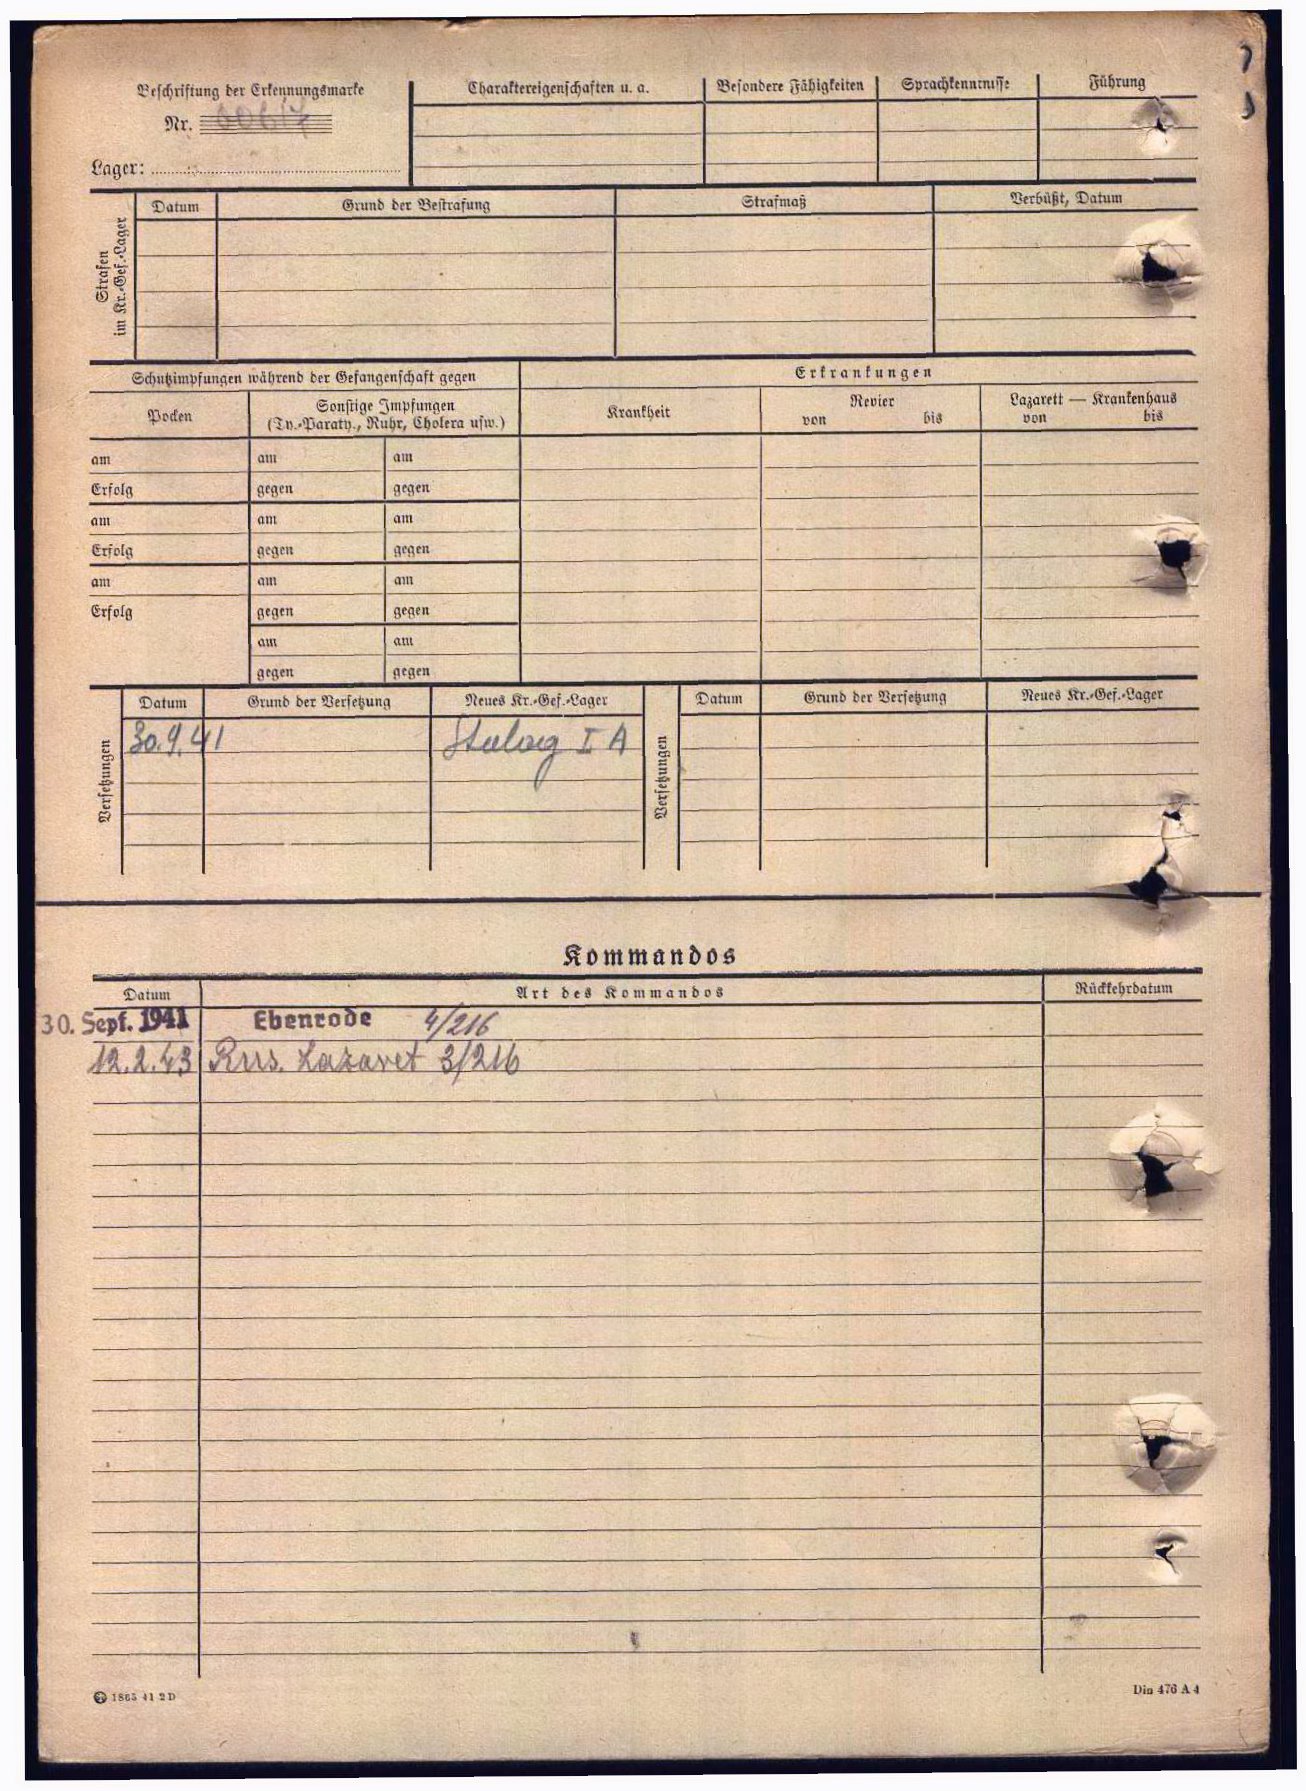 Beschriftung der Erkennungsmarke
Nr.
Lager:
Charaktereigenschaften u. a.
Besondere Fähigkeiten
Sprachkenntnisse
Führung
Strafen
im Kr.-Gef.-Lager
Datum
Grund der Bestrafung
Strafmaß
Verbüßt, Datum
Schutzimpfungen während der Gefangenschaft gegen
Erkrankungen
Pocken
Sonstige Impfungen
(Ty.-Paraty., Ruhr, Cholera usw.)
Krankheit
Revier
von bis
Lazarett — Krankenhaus
von bis
am am am
Erfolg gegen gegen
am am am
Erfolg gegen gegen
am am am
Erfolg gegen gegen
am am
gegen gegen
Versetzungen
Datum Grund der Versetzung Neues Kr.-Gef.-Lager
30.9.41 Stalag I A
Versetzungen
Datum Grund der Versetzung Neues Kr.-Gef.-Lager
Kommandos
Datum Art des Kommandos Rückkehrdatum
30. Sept. 1941 Ebenrode 4/216
12.2.43 Rus. Lazaret 3/216
1865 41 2 D
Din 476 A 4